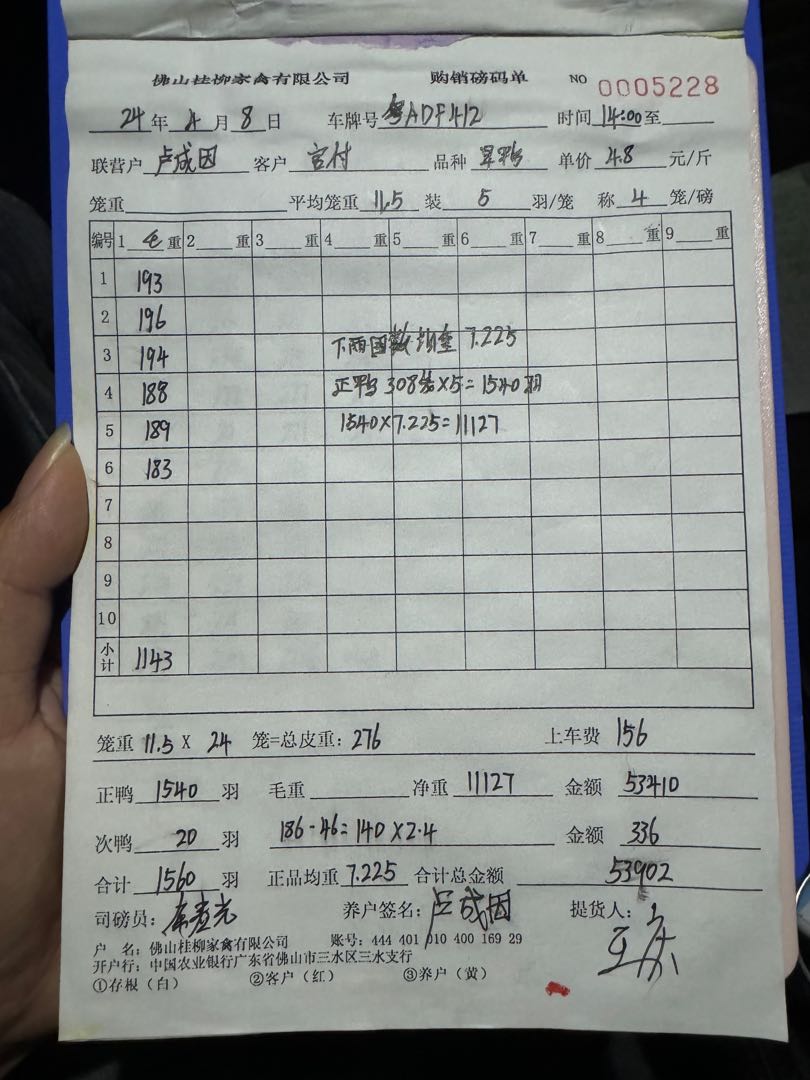 佛山桂柳家禽有限公司 购销磅码单 NO 0005228
24年4月8日 车牌号 粤ADF412 时间 14:00至
联营户 卢成因 客户 官付 品种 单价 4.8 元/斤
笼重 平均笼重 11.5 装 5 羽/笼 称 4 笼/磅
编号 1 毛 重 2 重 3 重 4 重 5 重 6 重 7 重 8 重 9 重
1 193
2 196
3 194 下雨 均重 7.225
4 188 正鸭308笼×5=1540羽
5 189 1540×7.225=11127
6 183
7
8
9
10
小计 1143
笼重 11.5 X 24 笼=总皮重: 276 上车费 156
正鸭 1540 羽 毛重 净重 11127 金额 53410
次鸭 20 羽 186-46=140×2.4 金额 336
合计 1560 羽 正品均重 7.225 合计总金额 53902
司磅员: 养户签名: 卢成因 提货人:
户 名: 佛山桂柳家禽有限公司 账号: 444 401 010 400 169 29
开户行: 中国农业银行广东省佛山市三水区三水支行
①存根(白) ②客户(红) ③养户(黄)